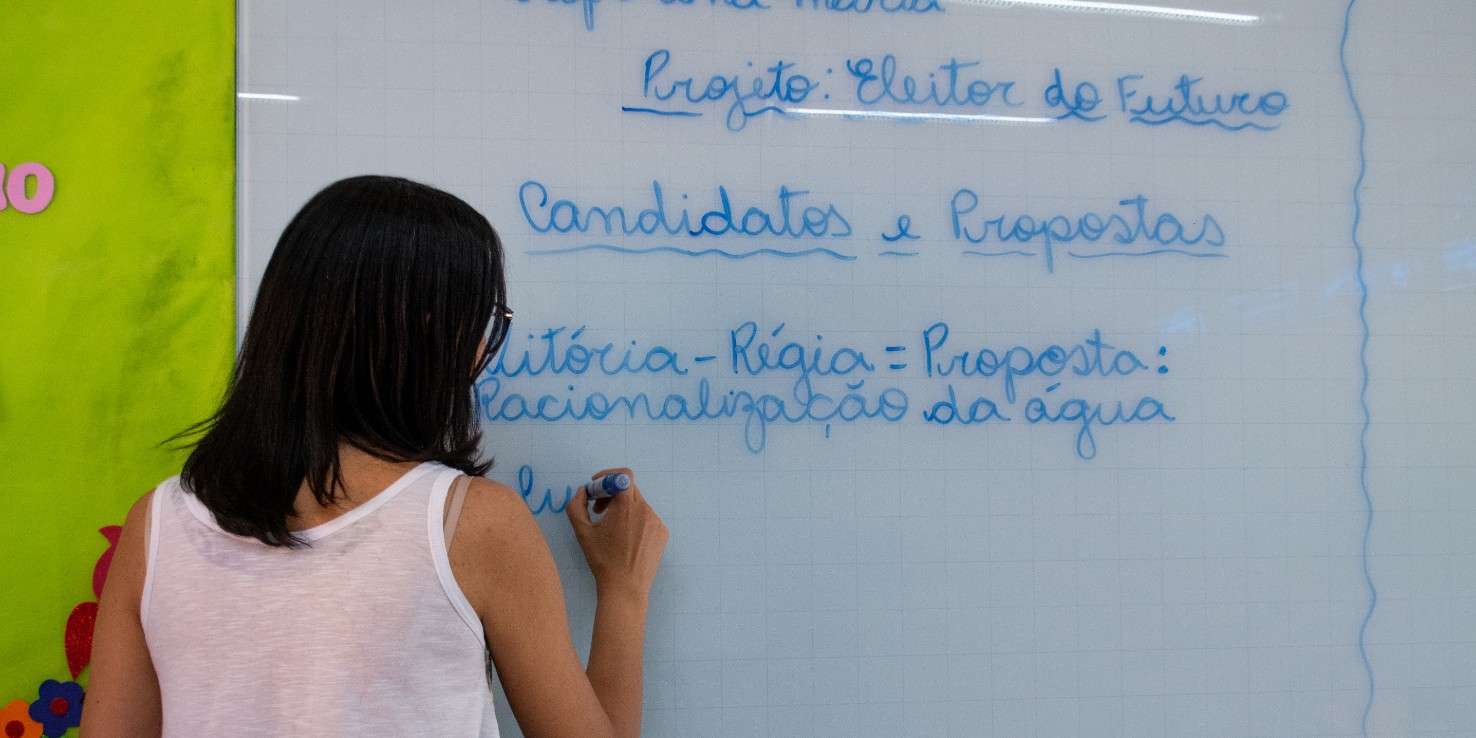 Projeto: Eleitor do Futuro
Candidatos e Propostas
Vitória-Régia = Proposta:
Racionalização da água